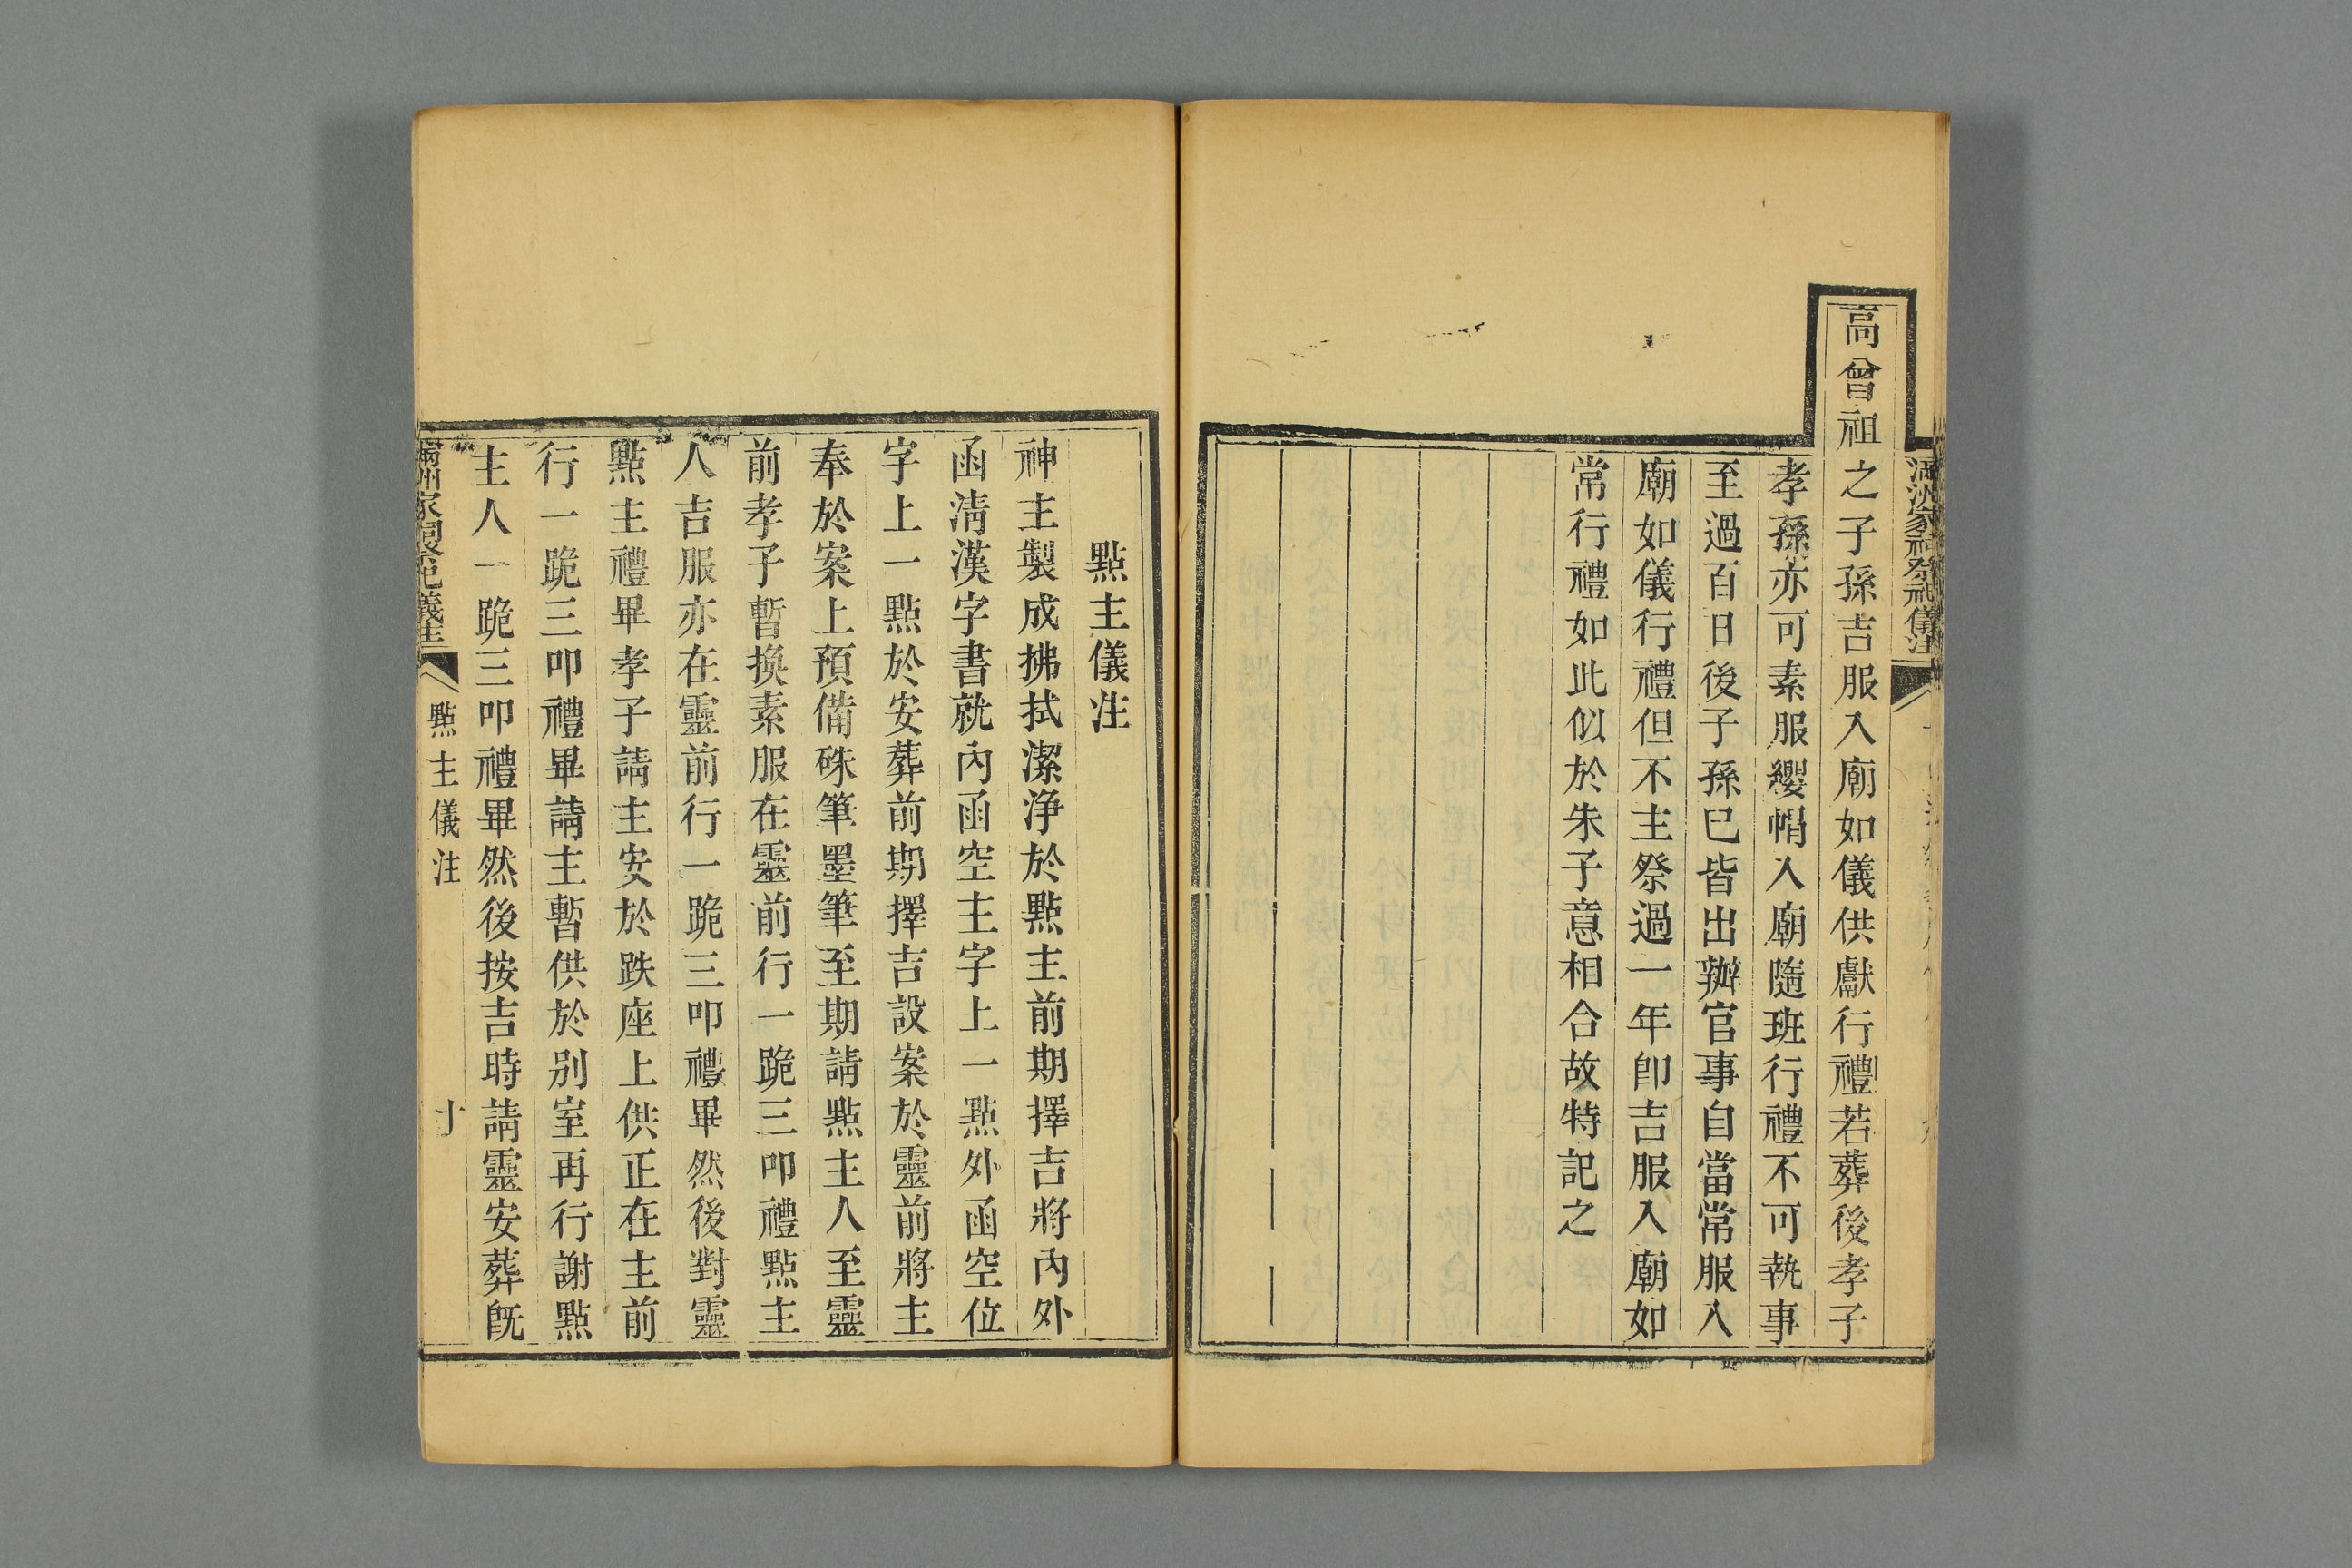 滿洲家祠祭祀儀注
高曾祖之子孫吉服入廟如儀供獻行禮若葬後孝子
孝孫亦可素服纓帽入廟隨班行禮不可執事
至過百日後子孫已皆出辦官事自當常服入
廟如儀行禮但不主祭過一年卽吉服入廟如
常行禮如此似於朱子意相合故特記之
點主儀注
神主製成拂拭潔淨於點主前期擇吉將內外
函淸漢字書就內函空主字上一點外函空位
字上一點於安葬前期擇吉設案於靈前將主
奉於案上預備硃筆墨筆至期請點主人至靈
前孝子暫換素服在靈前行一跪三叩禮點主
人吉服亦在靈前行一跪三叩禮畢然後對靈
點主禮畢孝子請主安於跌座上供正在主前
行一跪三叩禮畢請主暫供於別室再行謝點
主人一跪三叩禮畢然後按吉時請靈安葬旣
滿洲家祠祭祀儀注
點主儀注
十